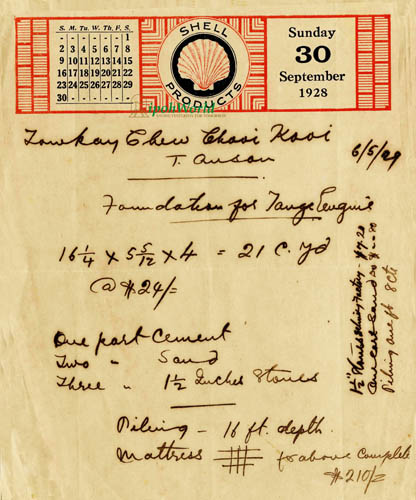 S. M. T. W. T. F. S.
1
2 3 4 5 6 7 8
9 10 11 12 13 14 15
16 17 18 19 20 21 22
23 24 25 26 27 28 29
30
SHELL
PRODUCTS
Sunday
30
September
1928
ipohWorld
Towkay Chew Chooi Kooi
T. Anson
6/5/29
Foundation for Tange Engine
16 1/4 x 5 5/12 x 4 = 21 C. Yd
@ $24/=
One part Cement
Two " Sand
Three " 1 1/2 Inches Stones
Piling - 16 ft. depth.
Mattress for above Complete
$210/=
1 1/2" Stones
One cart Sand
Piling one ft 8 cts